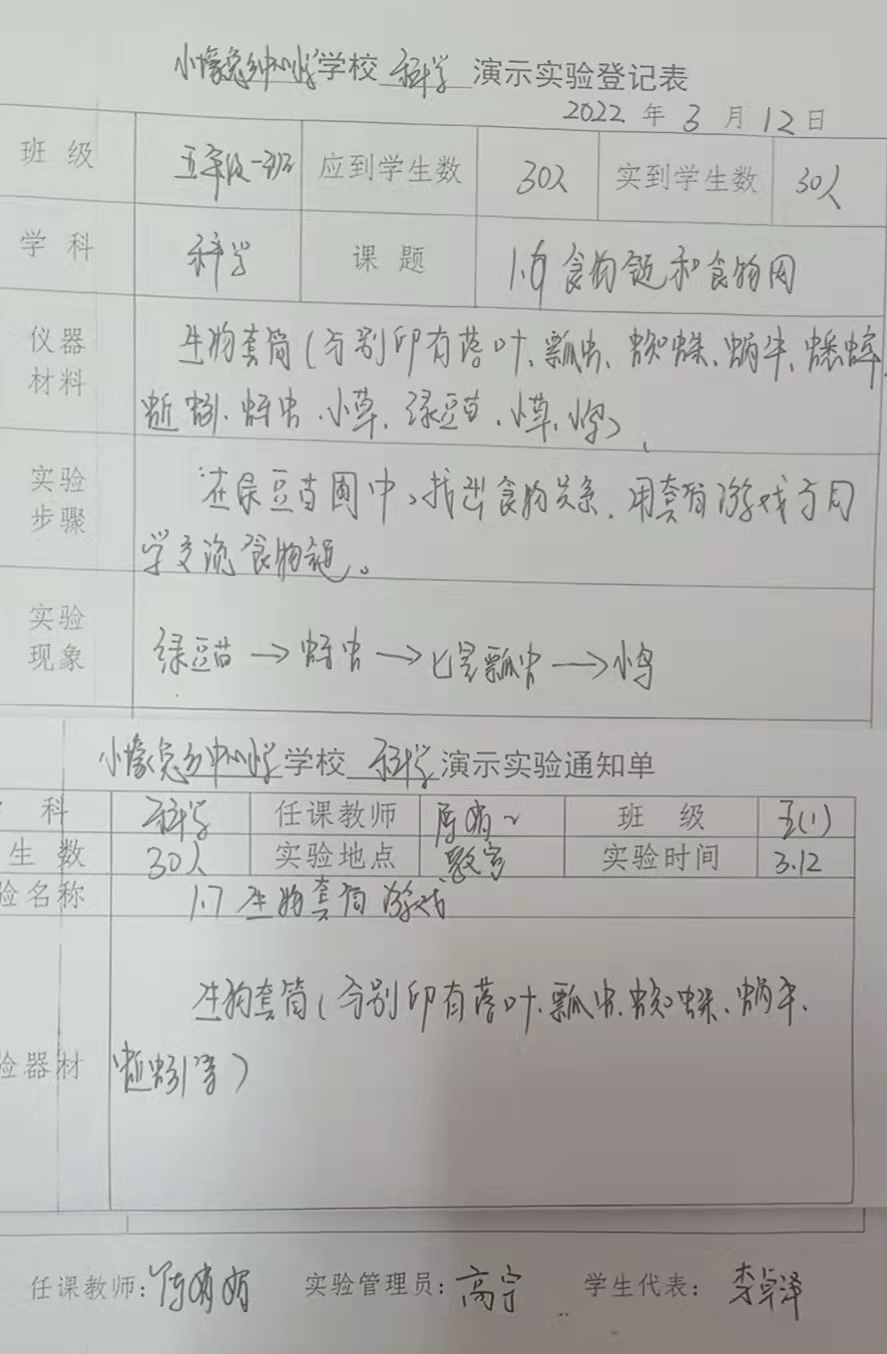 学校 科学 演示实验登记表
2022 年 3 月 12 日
班 级 五年级一班 应到学生数 30人 实到学生数 30人
学 科 科学 课 题 1.6 食物链和食物网
仪器材料 生物套筒(分别印有落叶、瓢虫、蜘蛛、蜗牛、蟋蟀、
蚯蚓、蚜虫、小草、绿豆苗、小草、小鸟)
实验步骤 在绿豆苗圃中,找出食物关系,用套筒游戏与同
学交流食物链。
实验现象 绿豆苗→蚜虫→七星瓢虫→小鸟
学校 科学 演示实验通知单
科 科学 任课教师 班 级 五(1)
生 数 30人 实验地点 教室 实验时间 3.12
验名称 1.7 生物套筒游戏
验器材 生物套筒(分别印有落叶、瓢虫、蜘蛛、蜗牛、
蚯蚓等)
任课教师: 实验管理员:高宁 学生代表:李卓泽